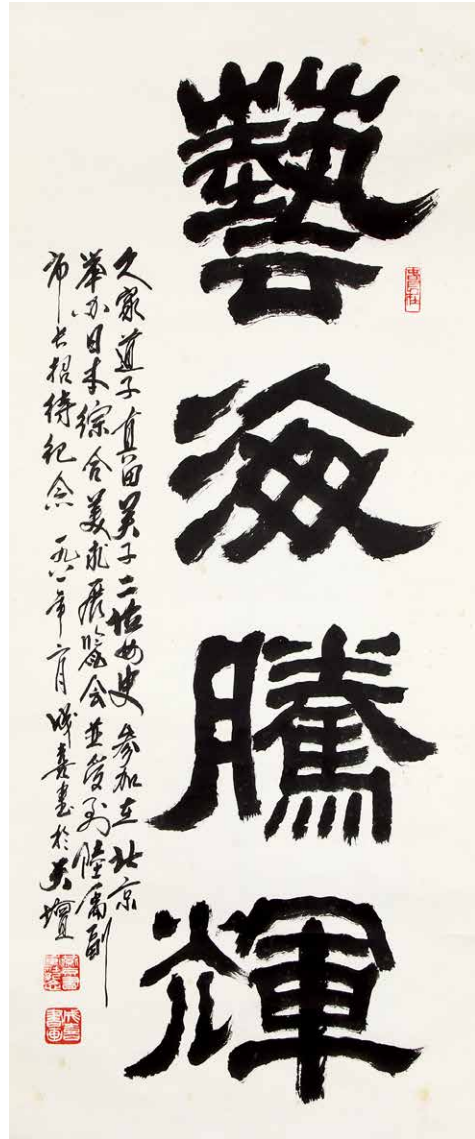 藝海騰輝
久家道子真田美子二位女史参加在北京
举办日本綜合美术展览会並受到陸禹副
市长招待纪念 一九八一年六月 成喜書於天壇